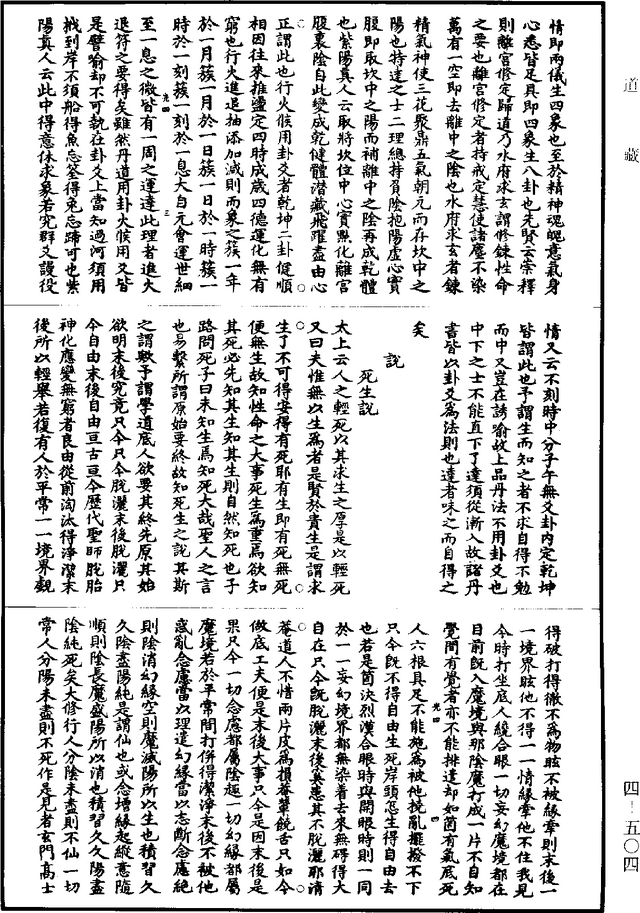 道藏
情即兩儀生四象也至於精神魂魄意氣身
心悉皆足具即四象生八卦也先賢云崇釋
則離宮修定歸道乃水府求玄謂修鍊性命
之要也離宮修定者持戒定慧使諸塵不染
萬有一空即去離中之陰也水府求玄者鍊
精氣神使三花聚鼎五氣朝元而存坎中之
陽也特達之士二理總持負陰抱陽虛心實
腹即取坎中之陽而補離中之陰再成乾體
也紫陽真人云取將坎位中心實點化離宮
腹裏陰自此變成乾健體潛藏飛躍盡由心
正謂此也行火候用卦爻者乾坤二卦健順
相因往來推盪定四時成歲四德運化無有
窮也行火進退抽添加減則而象之簇一年
於一月簇一月於一日簇一日於一時簇一
時於一刻簇一刻於一息大自元會運世細
至一息之微皆有一周之運達此理者進火
退符之要得矣雖然丹道用卦火候用爻皆
是譬喻却不可執在卦爻上當知過河須用
栰到岸不須船得魚忘筌得兔忘蹄可也紫
陽真人云此中得意休求象若究群爻謾役
情又云不刻時中分子午無爻卦內定乾坤
皆謂此也予謂生而知之者不求自得不勉
而中又豈在誘喻故上品丹法不用卦爻也
中下之士不能直下了達須從漸入故諸丹
書皆以卦爻為法則也達者味之而自得之
矣
說
死生說
太上云人之輕死以其求生之厚是以輕死
又曰夫惟無以生為者是賢於貴生是謂求
生了不可得安得有死耶有生即有死無死
便無生故知性命之大事死生為重焉欲知
其死必先知其生知其生則自然知死也子
路問死子曰未知生焉知死大哉聖人之言
也易繫所謂原始要終故知死生之說其斯
之謂歟予謂學道底人欲要其終先原其始
欲明末後究竟只今只今脫灑末後脫灑只
今自由末後自由亘古亘今歷代聖師脫胎
神化應變無窮者良由從前淘汰得淨潔末
後所以輕舉若復有人於平常一一境界覷
得破打得徹不為物眩不被緣牽則末後一
一境界眩他不得一一情緣牽他不住我見
今時打坐底人纔合眼一切妄幻魔境都在
目前既入魔境與那陰魔打成一片不自知
覺間有覺者亦不能排遣却如箇有氣底死
人六根具足不能施為被他撓亂擺撥不下
只今既不得自由生死岸頭怎生得自由去
也若是箇決烈漢合眼時與開眼時則一同
於一一妄幻境界都無染着去來無碍得大
自在只今既脫灑末後奚患其不脫灑耶清
菴道人不惜兩片皮為損菴葉饒舌只如今
做底工夫便是末後大事只今是因末後是
果只今一切念慮都屬陰趣一切幻緣都屬
魔境若於平常間打併得潔淨末後不被他
惑亂念慮當以理遣幻緣當以志斷念慮絕
則陰消幻緣空則魔滅陽所以生也積習久
久陰盡陽純是謂仙也或念增緣起縱意隨
順則陰長魔盛陽所以消也積習久久陽盡
陰純死矣大修行人分陰未盡則不仙一切
常人分陽未盡則不死作是見者玄門高士
四-五〇四